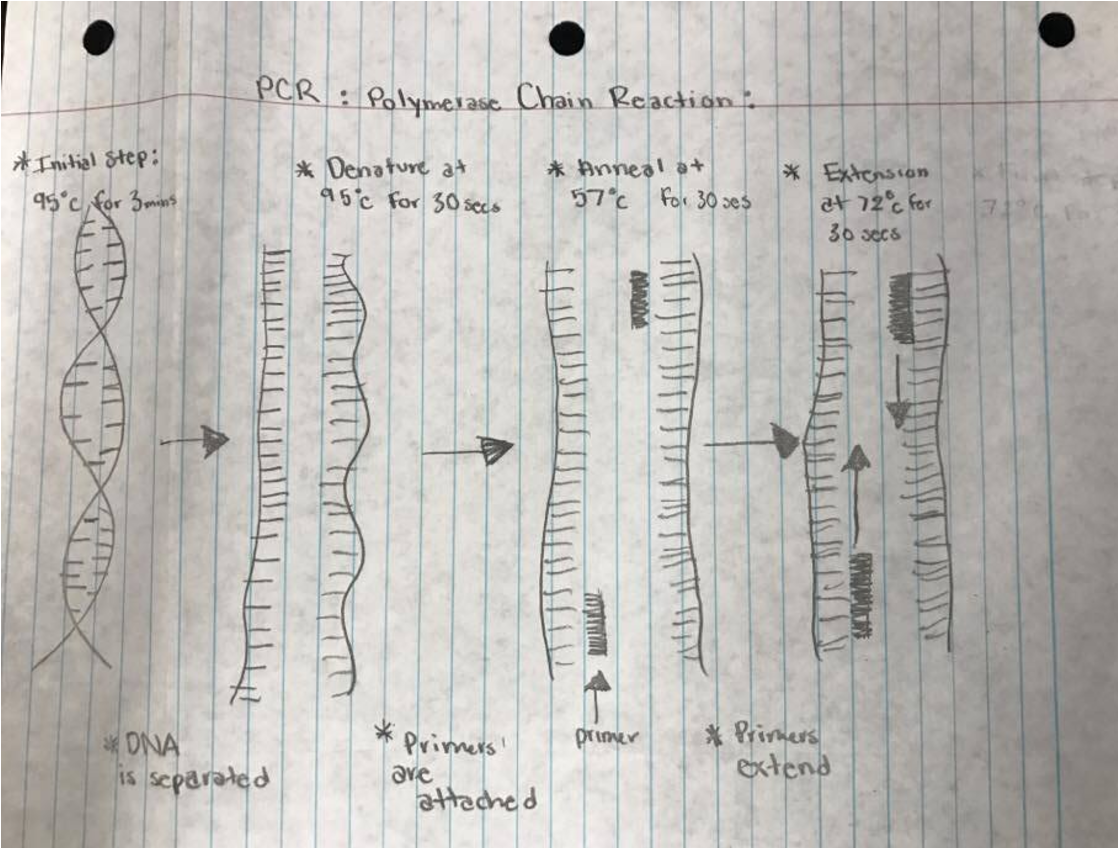 PCR : Polymerase Chain Reaction :
* Initial Step:
95°c for 3mins
* Denature at
95°c for 30 secs
* Anneal at
57°c for 30 ses
* Extension
at 72°c for
30 secs
* DNA
is separated
* Primers'
are
attached
primer
* Primers
extend